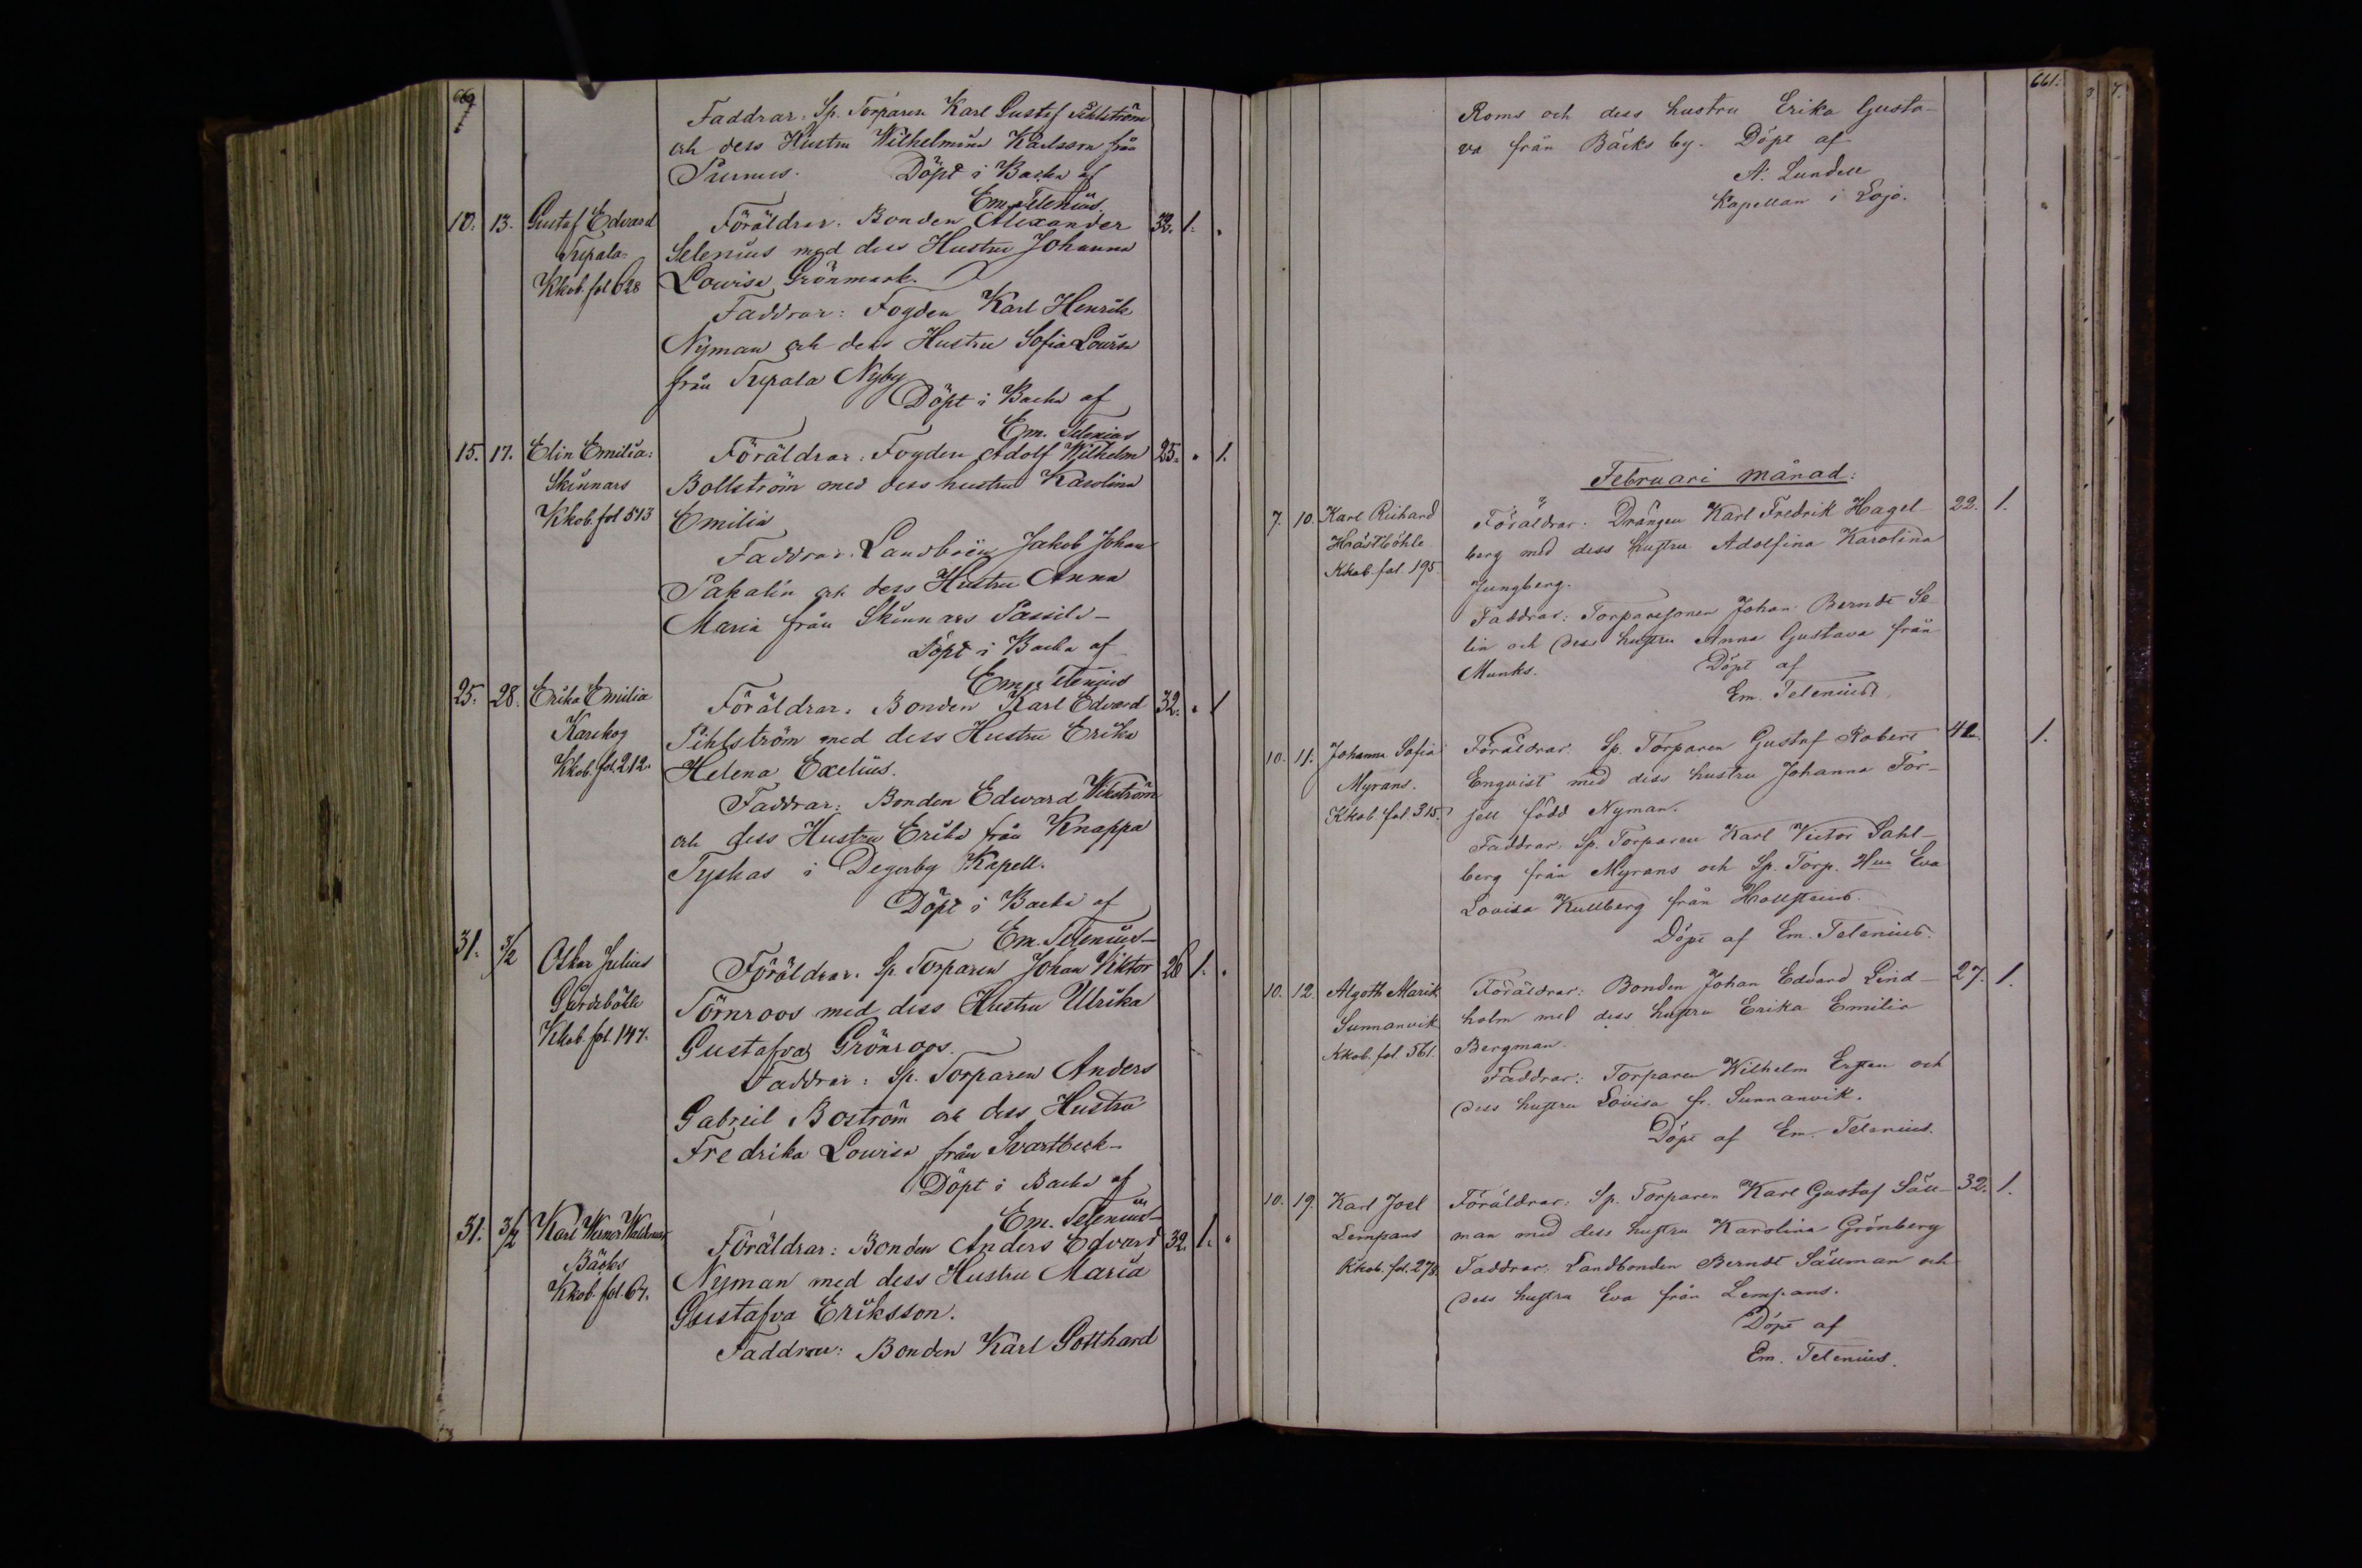 Faddrar: Sp. Torparen Karl Gustaf Pihlström
och dess Hustru Wilhelmina Karlsson från
Döpt i Backa af
Em. Telenius
10. 13. Gustaf Edvard Föräldrar. Bonden Alexander 32. 1.
Selenius med dess Hustru Johanna
Kkob. fol 628 Lovisa Grönmark.
Faddrar: Fogden Karl Henrik
Nyman och dess Hustru Sofia Lovisa
från Nyby
Döpt i Backa af
Em. Telenius
15. 17. Elin Emilia: Föräldrar: Fogden Adolf Wilhelm 25. 1.
Skinnars Bollström med dess hustru Karolina
Kkob. fol 513 Emilia
Faddrar: Landboen Jakob Johan
och dess Hustru Anna
Maria från Skinnars
Döpt i Backa af
Em. Telenius
25. 28. Erika Emilia Föräldrar: Bonden Karl Edvard 32. 1
Karskog Pihlström med dess Hustru Erika
Kkob. fol. 212. Helena Exelius.
Faddrar: Bonden Edward Wikström
och dess Hustru Erika från Knappa
Tyskas i Degerby Kapell.
Döpt i Backa af
Em. Telenius
31. 3/2 Oskar Julius Föräldrar. Sp. Torparen Johan Viktor 26 1.
Gårdsböle Törnroos med dess Hustru Ulrika
Kkob. fol. 147. Gustafva Grönroos.
Faddrar: Sp. Torparen Anders
Gabriel Boström och dess Hustru
Fredrika Lovisa från Svartbeck
Döpt i Backa af
Em. Telenius
31. 3/2 Karl Werner Waldemar Föräldrar: Bonden Anders Edvard 32. 1.
Bäcks Nyman med dess Hustru Maria
Kkob. fol. 67. Gustafva Eriksson.
Faddrar: Bonden Karl Gotthard
661.
Roms och dess hustru Erika Gusta-
va från Bäcks by. Döpt af
A. Lundell
Kapellan i Lojo.
Februari månad:
7. 10. Karl Richard Föräldrar: Drängen Karl Fredrik Hagel- 22. 1.
Hästböhle berg med dess hustru Adolfina Karolina
Kkob. fol. 195. Jungberg.
Faddrar: Torparesonen Johan Berndt Se-
lin och dess hustru Anna Gustava från
Munks. Döpt af
Em. Telenius.
10. 11. Johanna Sofia Föräldrar. Sp. Torparen Gustaf Robert 42. 1.
Myrans. Enqvist med dess hustru Johanna Tor-
Kkob. fol. 315. jell född Nyman.
Faddrar, Sp. Torparen Karl Victor Sahl-
berg från Myrans och Sp. Torp. Hu Eva
Lovisa Kullberg från
Döpt af Em. Telenius.
10. 12. Algoth Marik Föräldrar: Bonden Johan Edvard Lind- 27. 1.
Sunnanvik holm med dess hustru Erika Emilia
Kkob. fol. 561. Bergman.
Faddrar: Torparen Wilhelm och
dess hustru Lovisa fr. Sunnanvik.
Döpt af Em. Telenius.
10. 19. Karl Joel Föräldrar: Sp. Torparen Karl Gustaf Säll- 32. 1.
Lempans man med dess hustru Karolina Grönberg
Kkob. fol. 278. Faddrar: Landbonden Berndt Sällman och
dess hustru Eva från Lempans.
Döpt af
Em. Telenius.